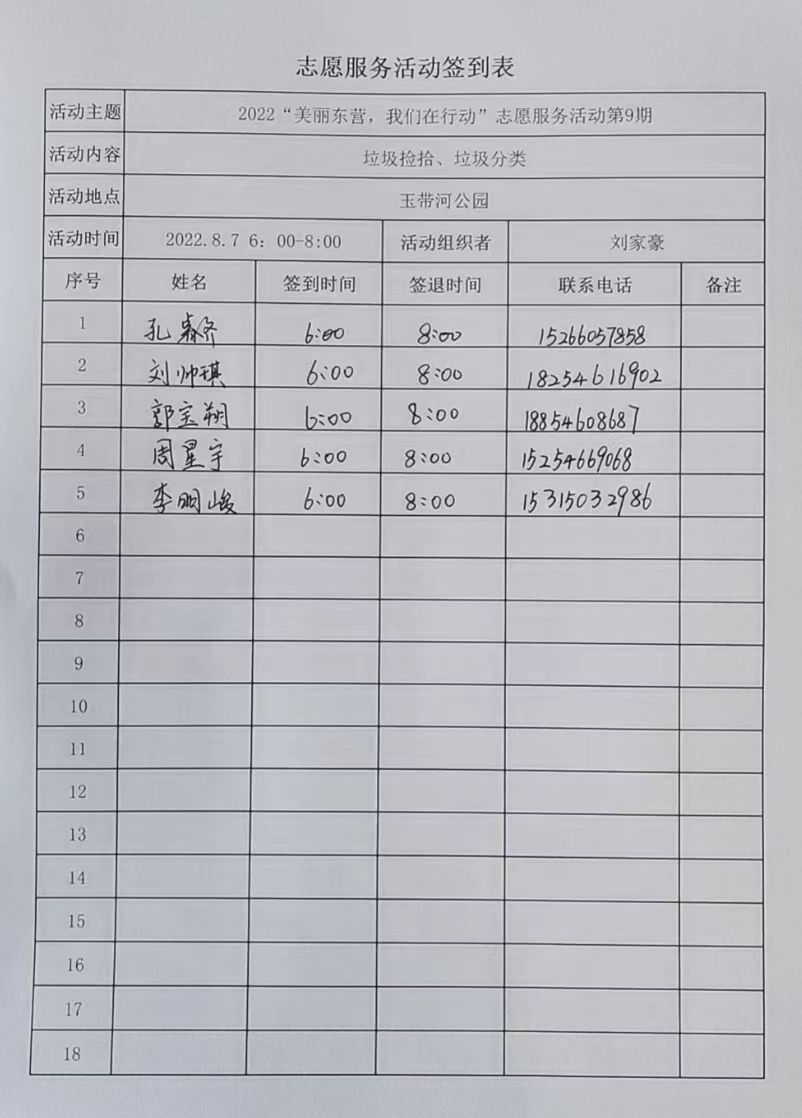 志愿服务活动签到表
活动主题 2022“美丽东营，我们在行动”志愿服务活动第9期
活动内容 垃圾捡拾、垃圾分类
活动地点 玉带河公园
活动时间 2022.8.7 6：00-8:00 活动组织者 刘家豪
序号 姓名 签到时间 签退时间 联系电话 备注
1 孔 6:00 8:00 15266057858
2 刘帅琪 6:00 8:00 18254616902
3 郭宝翔 6:00 8:00 18854608687
4 周星宇 6:00 8:00 15254669068
5 李明峻 6:00 8:00 15315032986
6
7
8
9
10
11
12
13
14
15
16
17
18